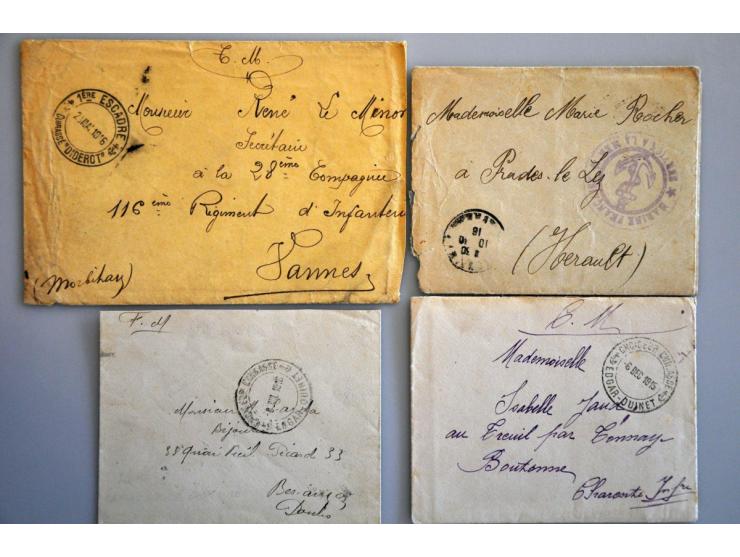 F. M.
1ÈRE ESCADRE
CUIRASSÉ "DIDEROT"
Monsieur René Le Ménor
Secrétaire
à la 28ème Compagnie
116ème Régiment d'Infanterie
Vannes
(Morbihan)
Mademoiselle Marie Rocher
à Prades-le-Lez
(Hérault)
MARINE FRANÇAISE
SERVICE À LA MER
10
18
F. M
Monsieur
Bijou
33 Quai Veil Picard 33
Besançon
Doubs
F. M
CROISEUR CUIRASSÉ
6 DEC 1915
EDGAR-QUINET
Mademoiselle
Isabelle
au Treuil par Tonnay
Boutonne
Charente Infre